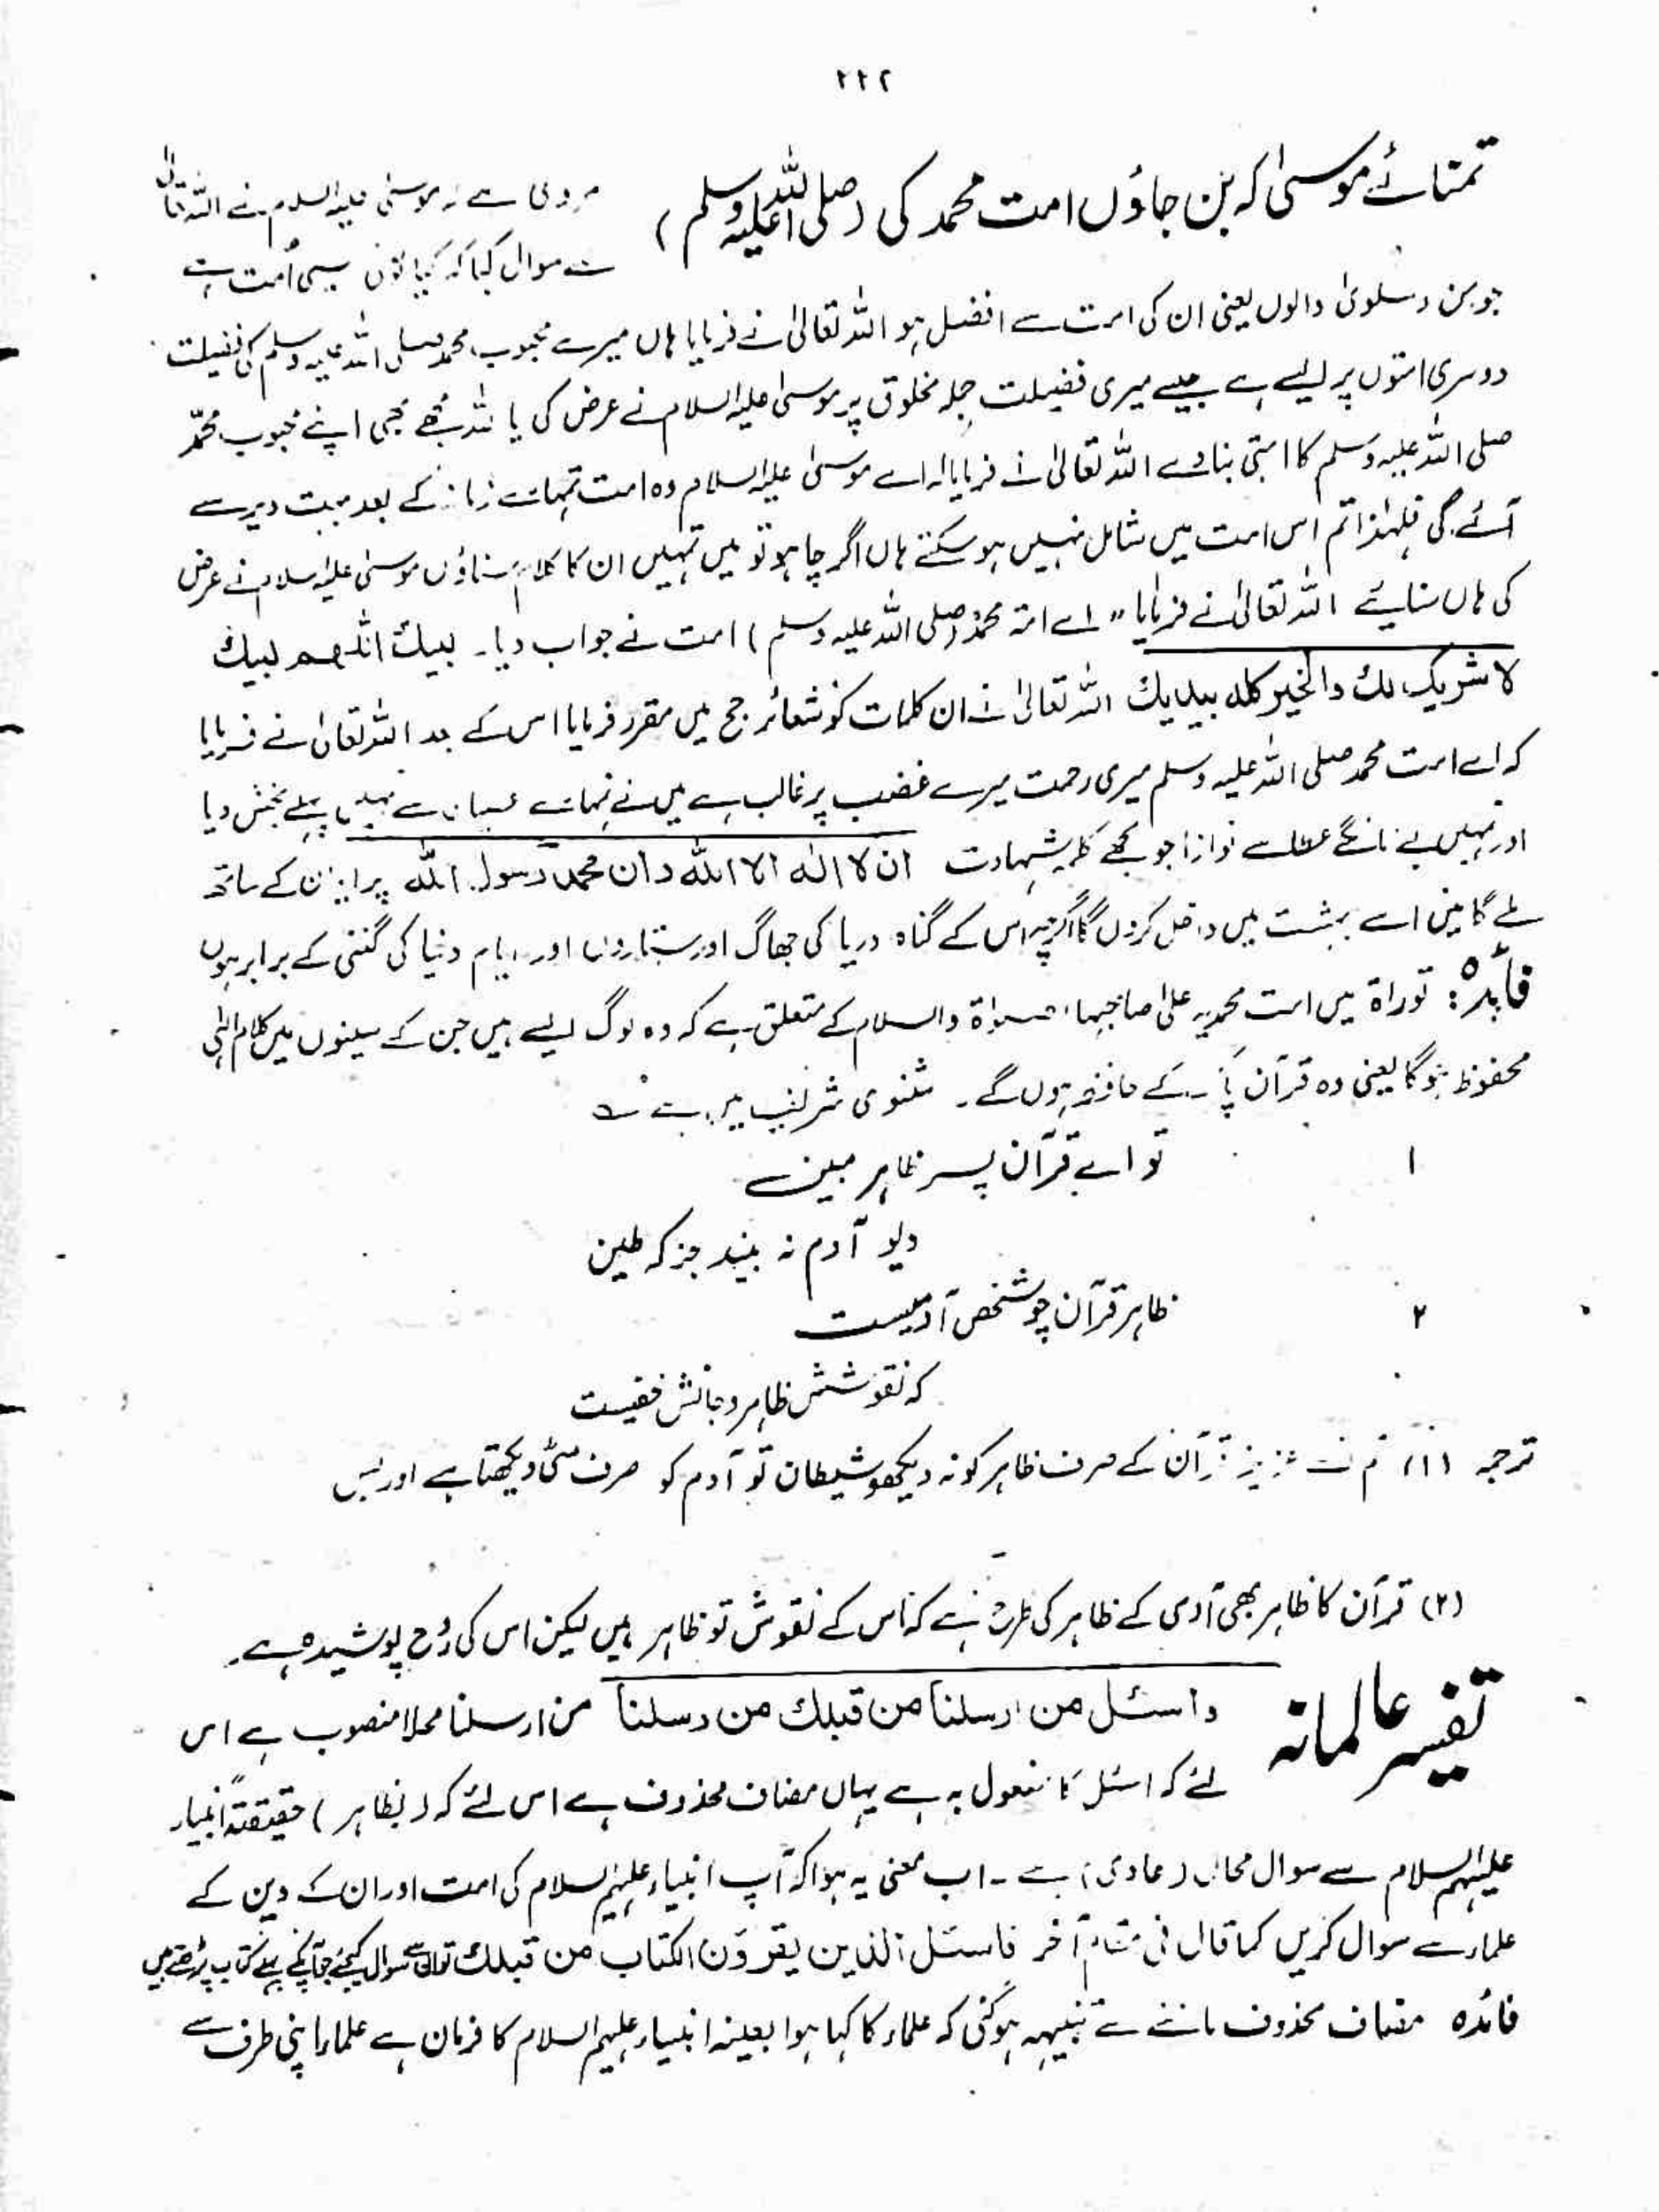 ۲۲۲
تمنائے موسیٰ کہ بن جاؤں امت محمد کی (صلی اللہ علیہ وسلم)
مروی ہے کہ موسیٰ علیہ السلام نے اللہ تعالیٰ
سے سوال کیا کہ کیا کوئی ایسی اُمت ہے
جو من و سلویٰ والوں یعنی ان کی امت سے افضل ہو اللہ تعالیٰ نے فرمایا ہاں میرے محبوب محمد صلی اللہ علیہ وسلم کی فضیلت
دوسری امتوں پر ایسے ہے جیسے میری فضیلت جملہ مخلوق پر موسیٰ علیہ السلام نے عرض کی یا اللہ مجھے بھی اپنے محبوب محمّد
صلی اللہ علیہ وسلم کا امتی بنا دے اللہ تعالیٰ نے فرمایا اے موسیٰ علیہ السلام وہ امت تمہارے زمانہ کے بعد بہت دیر سے
آئے گی فلہٰذا تم اس امت میں شامل نہیں ہو سکتے ہاں اگر چاہو تو میں تمہیں ان کا کلام سناؤں موسیٰ علیہ السلام نے عرض
کی ہاں سنایئے اللہ تعالیٰ نے فرمایا " اے امۃ محمد (صلی اللہ علیہ وسلم) امت نے جواب دیا۔ لبیك اللهم لبیك
لا شریك لك والخیر کله بیدیك اللہ تعالیٰ نے ان کلمات کو شعائر حج میں مقرر فرمایا اس کے بعد اللہ تعالیٰ نے فرمایا
کہ اے امت محمد صلی اللہ علیہ وسلم میری رحمت میرے غضب پر غالب ہے میں نے تمہارے عصیان سے تمہیں پہلے بخش دیا
اور تمہیں بے مانگے عطا سے نوازا جو مجھے کلمہ شہادت ان لا اله الا الله وان محمد رسول الله پر ایمان کے ساتھ
ملے گا میں اسے بہشت میں داخل کروں گا اگرچہ اس کے گناہ دریا کی جھاگ اور ستاروں اور ایام دنیا کی گنتی کے برابر ہوں
فائدہ: توراۃ میں امت محمدیہ علیٰ صاحبہا الصلوٰۃ والسلام کے متعلق ہے کہ وہ لوگ ایسے ہیں جن کے سینوں میں کلام الٰہی
محفوظ ہوگا یعنی وہ قرآن پاک کے حافظ ہوں گے۔ مثنوی شریف میں ہے
۱ تو اے قرآن پسر ظاہر مبیں
دیو آدم نہ بیند جز کہ طین
۲ ظاہر قرآن چو شخص آدمیست
کہ نقوشش ظاہر و جانش خفیست
ترجمہ (۱) تم اے عزیز قرآن کے صرف ظاہر کو نہ دیکھو شیطان تو آدم کو صرف مٹی دیکھتا ہے اور بس
(۲) قرآن کا ظاہر بھی آدمی کے ظاہر کی طرح ہے کہ اس کے نقوش تو ظاہر ہیں لیکن اس کی رُوح پوشیدہ ہے۔
تفسیر عالمانہ
واسئل من ارسلنا من قبلك من رسلنا من ارسلنا محلا منصوب ہے اس
لئے کہ اسئل کا مفعول بہ ہے یہاں مضاف محذوف ہے اس لئے کہ (بظاہر) حقیقتہً انبیاء
علیہم السلام سے سوال محال (عادی) ہے۔ اب معنی یہ ہوا کہ آپ انبیاء علیہم السلام کی امت اور ان کے دین کے
علماء سے سوال کریں کما قال فی مقام آخر فاسئل الذین یقرؤن الکتاب من قبلك تو ان سے سوال کیجئے جو آپ کے پہلے کتاب پڑھتے ہیں
فائدہ مضاف محذوف ماننے سے تنبیہہ ہوگئی کہ علماء کا کہا ہوا بعینہ انبیاء علیہم السلام کا فرمان ہے علماء اپنی طرف سے